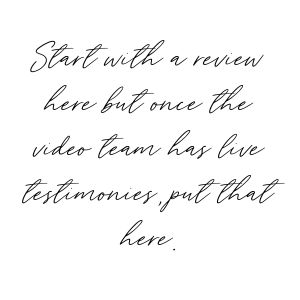 Start with a review
here but once the
video team has live
testimonies, put that
here.